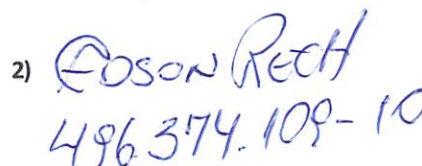 2) EDSON RECH
496.374.109-10